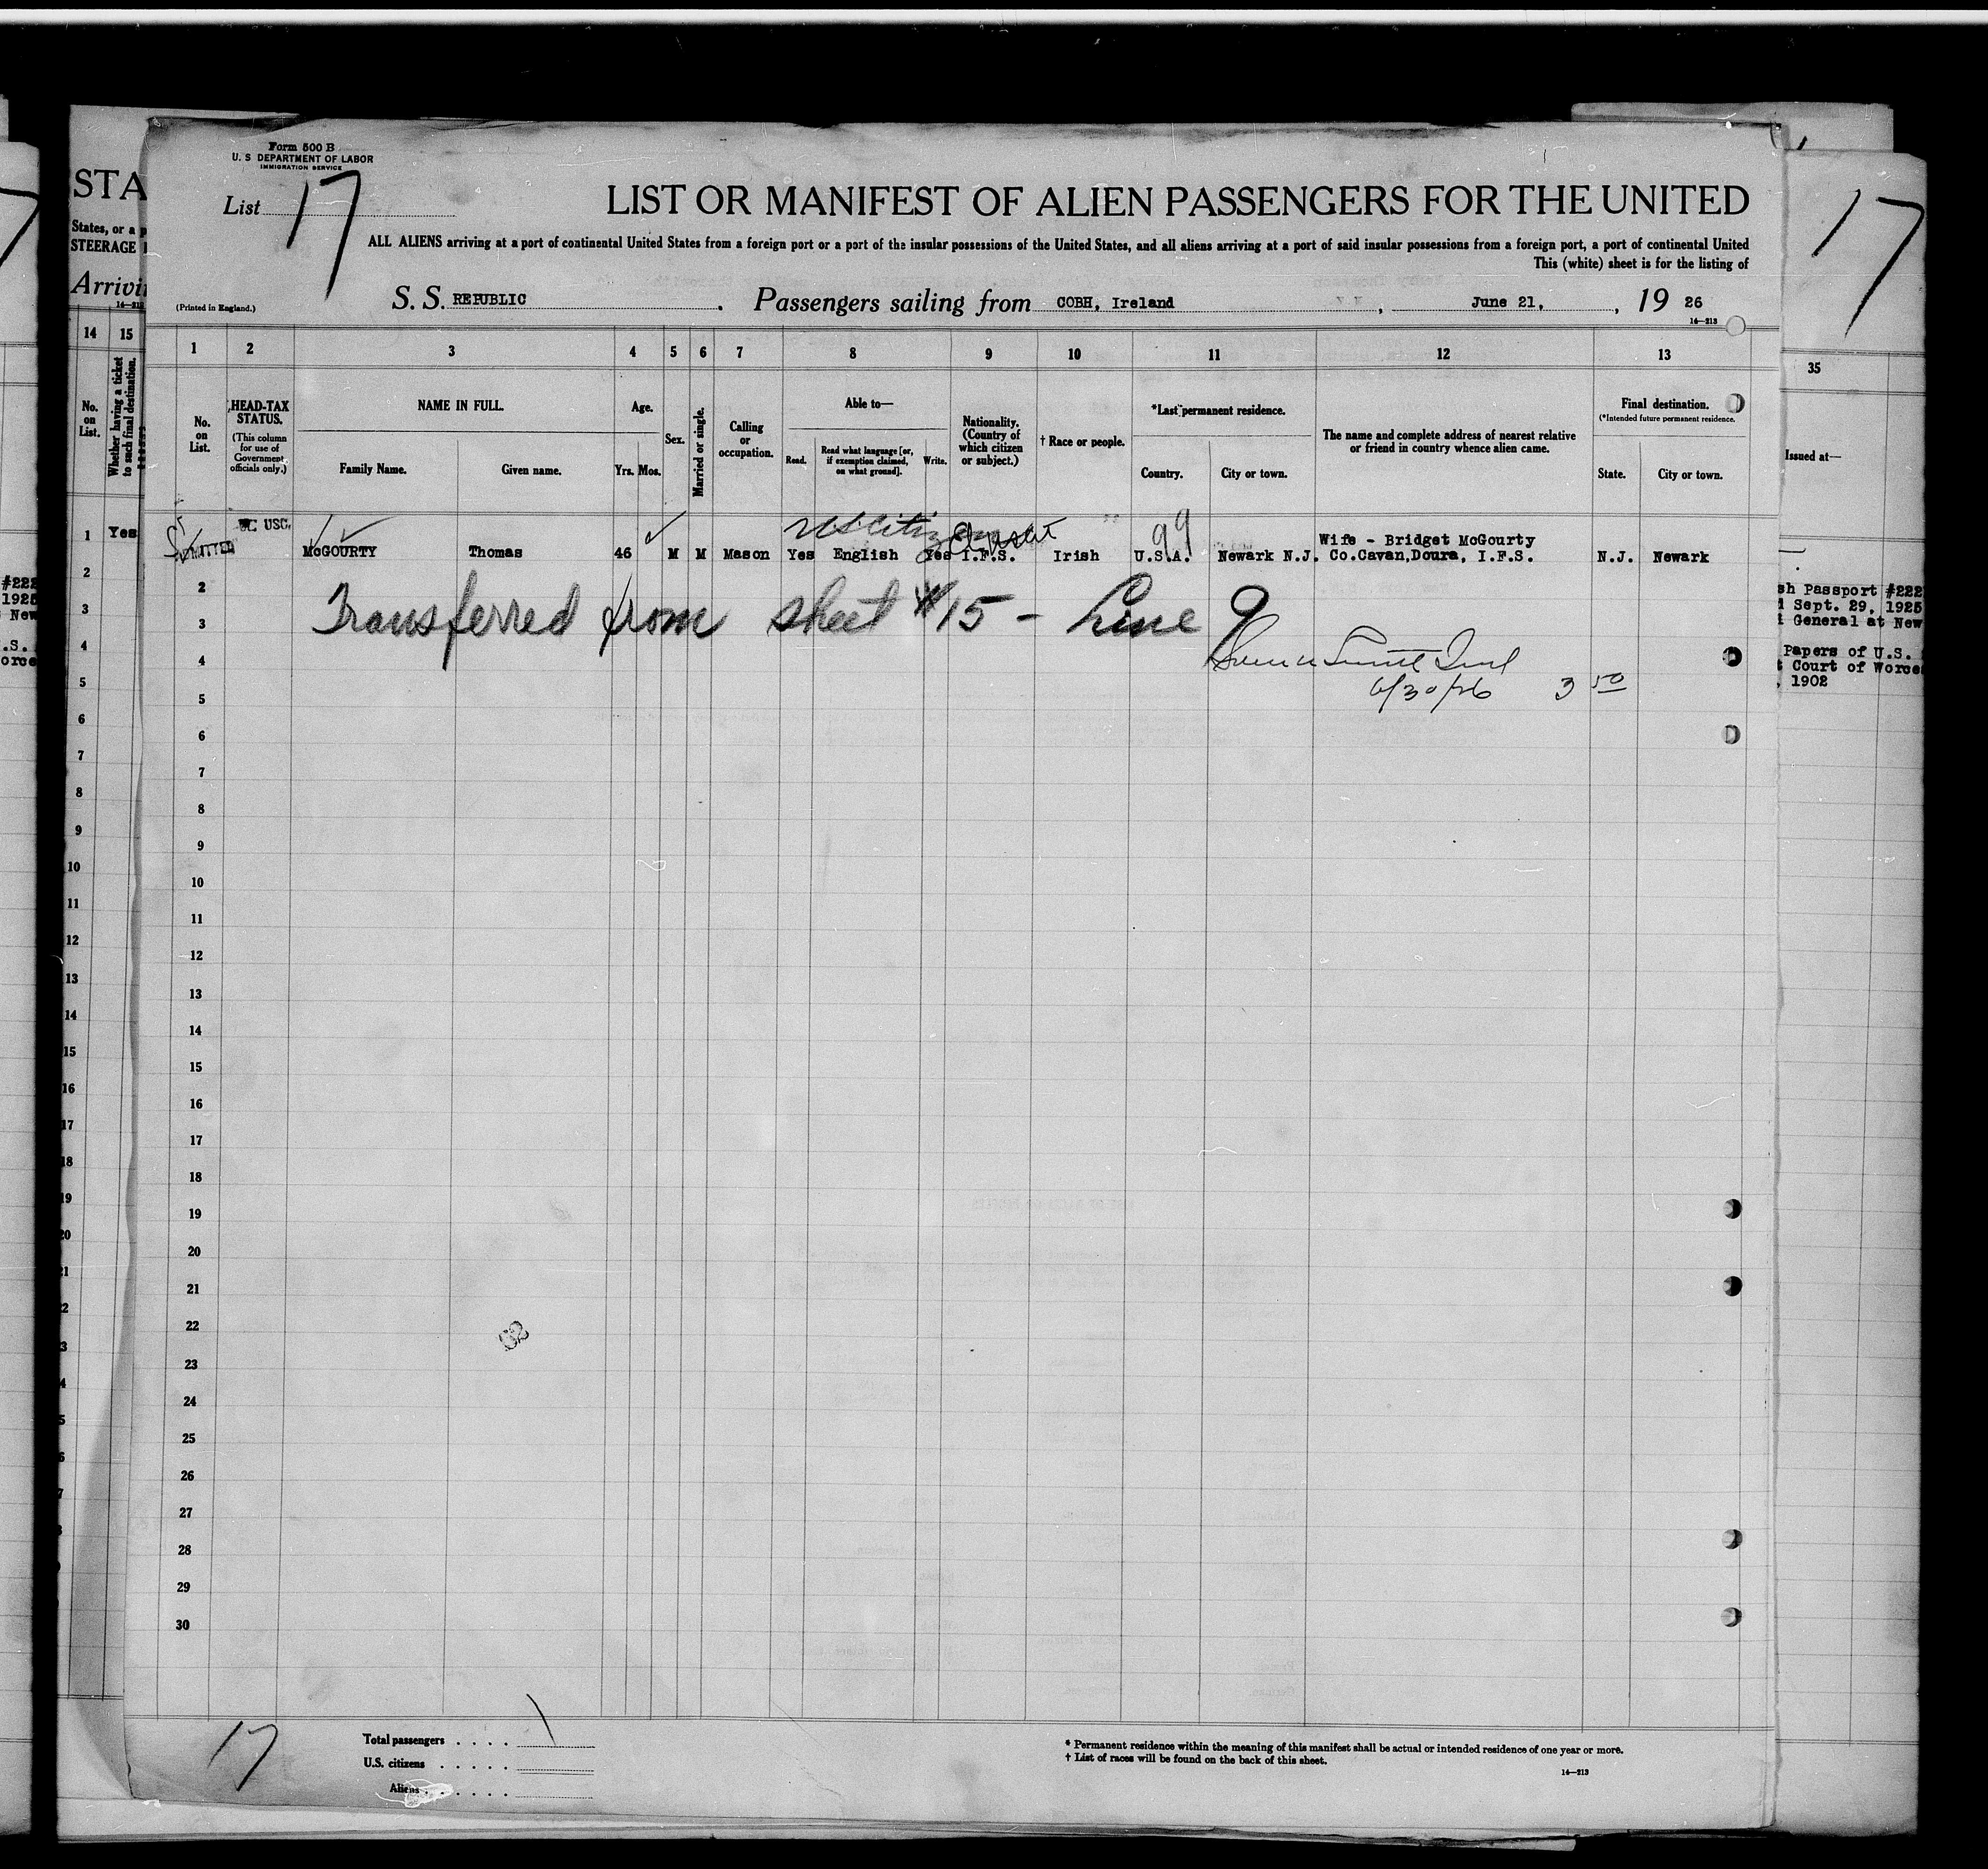 Form 500 B
U. S DEPARTMENT OF LABOR
IMMIGRATION SERVICE
List 17
LIST OR MANIFEST OF ALIEN PASSENGERS FOR THE UNITED
ALL ALIENS arriving at a port of continental United States from a foreign port or a port of the insular possessions of the United States, and all aliens arriving at a port of said insular possessions from a foreign port, a port of continental United
This (white) sheet is for the listing of
(Printed in England.)
S. S. REPUBLIC. Passengers sailing from COBH, Ireland, June 21, 19 26
14—213
1 2 3 4 5 6 7 8 9 10 11 12 13
No. on List.
HEAD-TAX STATUS.
(This column for use of Government officials only.)
NAME IN FULL.
Family Name. Given name.
Age.
Yrs. Mos.
Sex.
Married or single.
Calling or occupation.
Able to—
Read. Read what language [or, if exemption claimed, on what ground]. Write.
Nationality. (Country of which citizen or subject.)
† Race or people.
*Last permanent residence.
Country. City or town.
The name and complete address of nearest relative or friend in country whence alien came.
Final destination.
(*Intended future permanent residence.
State. City or town.
USC
99
McGOURTY Thomas 46 M M Mason Yes English Yes I.F.S. Irish U.S.A. Newark N.J. Wife - Bridget McGourty
Co.Cavan,Doura, I.F.S. N.J. Newark
2
Transferred from sheet #15 - Line 9
3
4
6/30/26 3 50
5
6
7
8
9
10
11
12
13
14
15
16
17
18
19
20
21
22
23
24
25
26
27
28
29
30
17
Total passengers
U.S. citizens
Aliens
* Permanent residence within the meaning of this manifest shall be actual or intended residence of one year or more.
† List of races will be found on the back of this sheet.
14—213
STA
States, or a p
STEERAGE
Arrivi
14 15
No. on List.
Whether having a ticket to such final destination.
1 Yes
2
3
4
5
6
7
8
9
10
11
12
13
14
15
16
17
18
19
20
17
35
Issued at—
sh Passport #222
Sept. 29, 1925
General at New
Papers of U.S.
Court of Worce
, 1902
#222
1925
New
.S.
orce